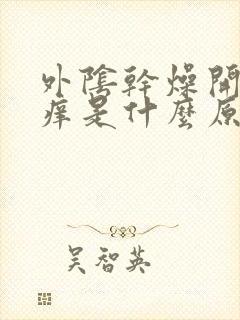 外陰幹燥開
痒是什麼原
吴智英